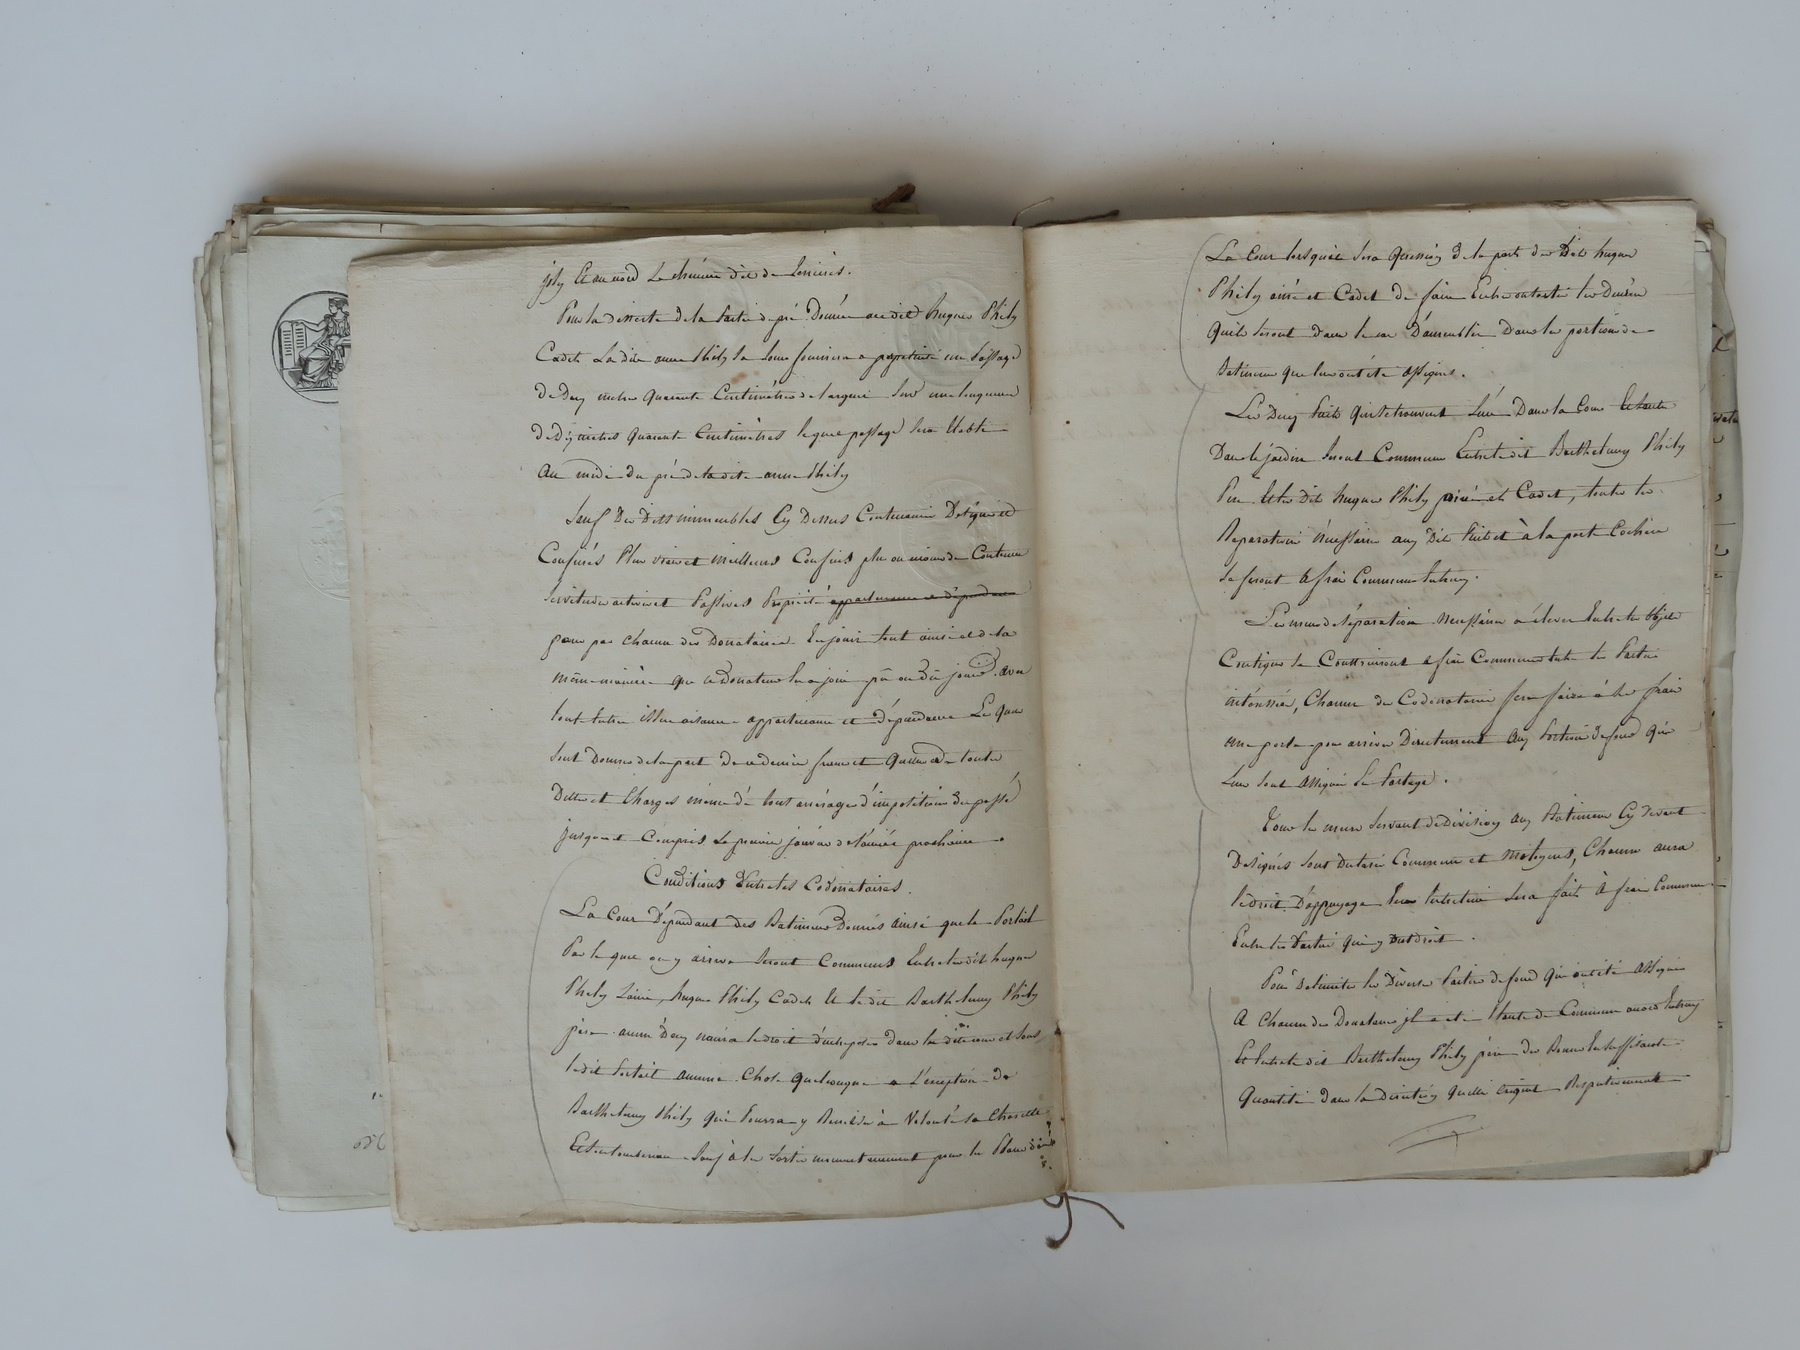 Et au nord Le chemin dit de
Pour la desserte de la Partie de pré Donnée audit hugues Phily
Cadet La dite anne Phily sa Soeur fournira a perpetuité un Passage
de deux metres Quarante Centimètres de largeur Sur une longueur
de Dix metres Quarante Centimètres lequel passage Sera Etabli
Au midi du pré de ladite anne Phily
Sauf Des Dits immeubles Cy Dessus Contenance Designée et
Confinés Plus vrais et meilleurs Confins plus ou moins de Contenue
Servitudes actives et Passives Propriété appartenances et dépendances
pour par chacun des Donataires En jouir tout ainsi et de la
même manière que le Donateur en a joui pû ou dû jouir avec
tout Entrée issue aisance appartenance et dépendance Le quel
Sont Donnés de la part de ce dernier francs et Quittes de toutes
Dettes et Charges même de tout arrérages d'impositions du passé
jusques et Compris Le premier janvier de l'année prochaine.
Conditions Entre les Codonataires.
La Cour Dépendant des Batimens Donnés ainsi que le Portail
Par le quel on y arrive Seront Communs Entre lesdits hugues
Phily L'ainé, hugues Phily Cadet Et le dit Barthelemy Phily
père aucun d'eux n'aura le droit d'entreposer dans la dite cour et Sous
le dit Portail aucune Chose Quelconque a L'exception de
Barthelemy Phily Qui Pourra y Remiser à Volonté Sa Charette
Et Son tombereau Sauf à les Sortir momentanement pour les Placer dans
La Cour lorsqu'il Sera Question de la part des Dits hugues
Phily ainé et Cadet de faire Entrer ou sortir les Denrées
Qu'ils Seront dans le cas D'ammeubler Dans les portions de
Batimens que leur ont été assignés.
Les Deux Puits Qui Se trouvent L'un Dans la Cour Et l'autre
Dans le jardin Seront Communs Entre le dit Barthelemy Phily
Père Et les Dits hugues Phily ainé et Cadet, toutes les
Reparations Nécessaires aux Dits Puits et à la porte Cochère
Se feront à frais Communs Entr'eux.
Les murs de Séparation Nécessaires a élever Entre les Objets
Contigus Se Construiront a frais Communs Entre les Parties
intéressées, Chacun des Codonataires fera faire à Ses frais
une porte pour arriver Directement Aux Portions de fond Qui
Leur Sont Assignés En Partage.
Tous les murs Servant de Division aux Batimens Cy devant
Designés Sont Declarés Communs et Mitoyens, Chacun aura
le droit D'appuyage Leur Entretien Sera fait à frais Communs
Entre les Parties Qui y ont droit.
Pour Delimiter les Diverses Parties de fond Qui ont été Assignés
A Chacun des Donataires il a été Planté de Commun accord Entr'eux
Et Entre le dit Barthelemy Phily père Des Bornes En Suffisante
Quantité Dans la Direction Qu'elles Exigent Respectivement